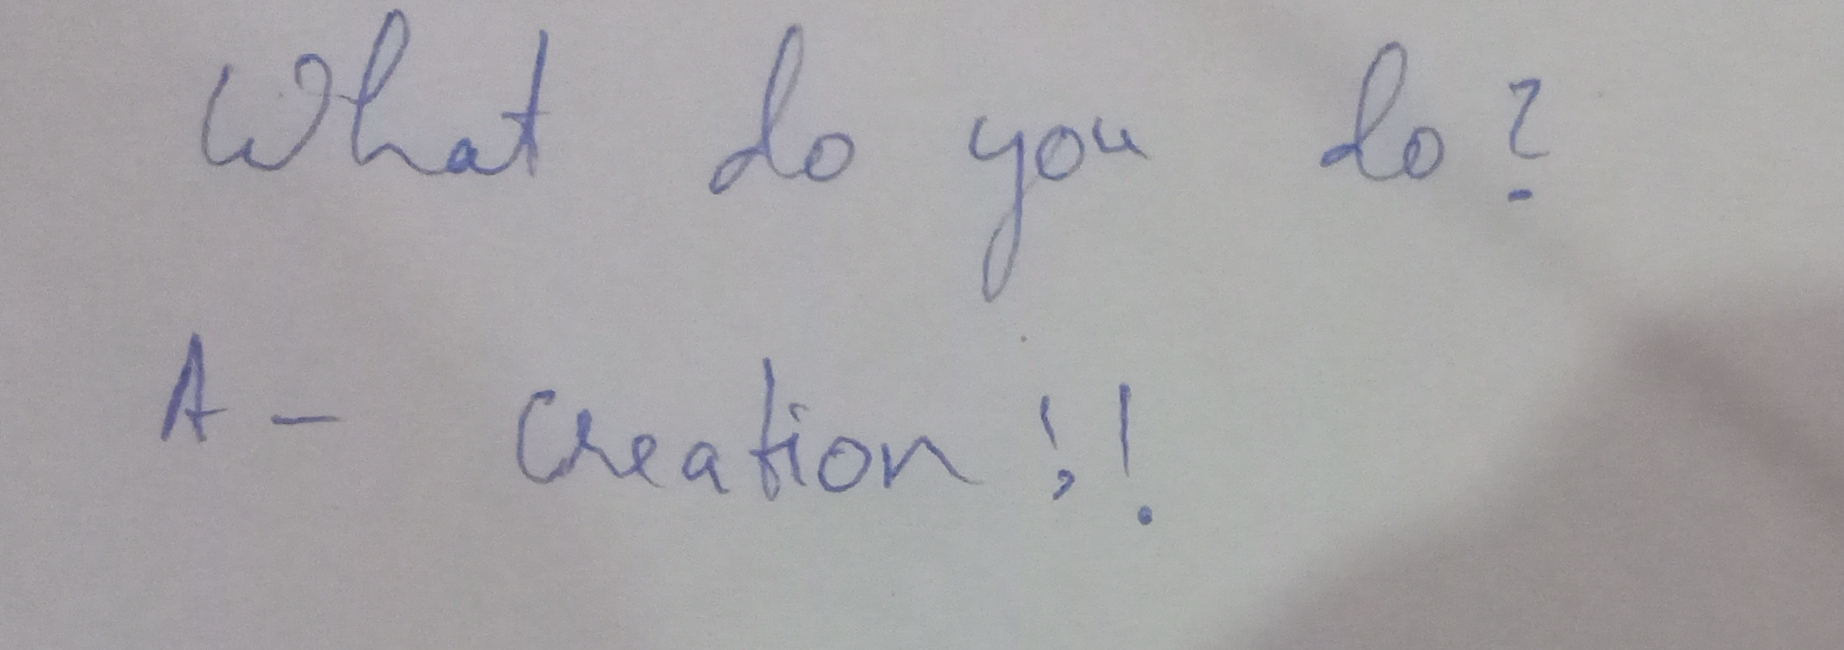 What do you do?
A - Creation !!